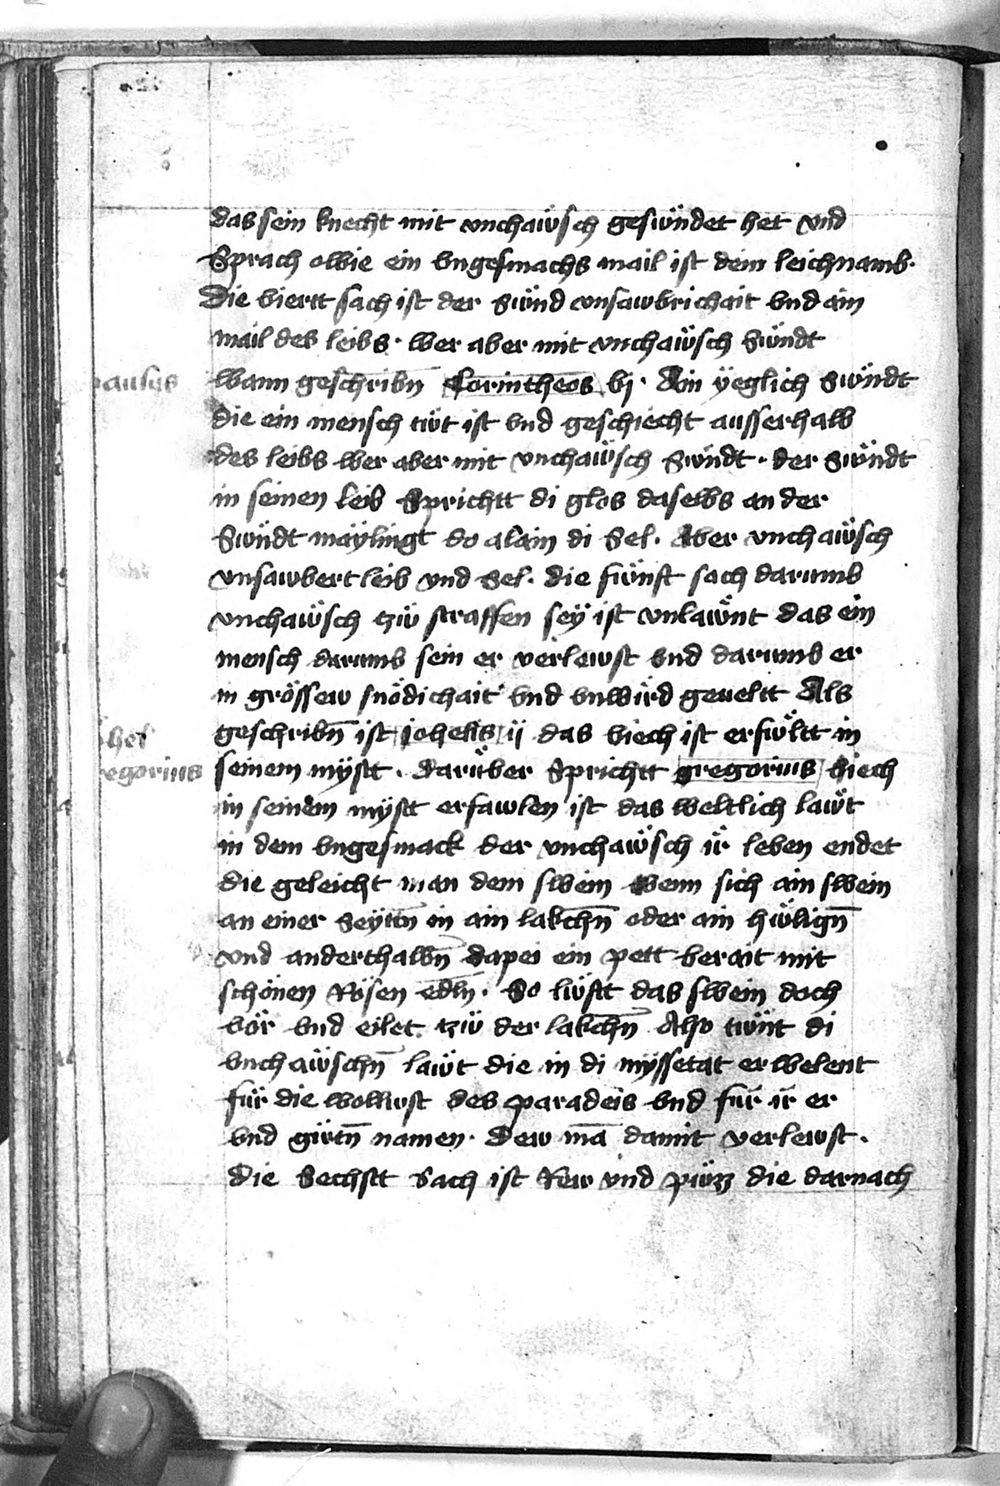 das sein knecht mit vnchaẅsch geswndet het vnd
Sprach o wie ein vngesmachs mail ist dein leichnamb·
Die viertt sach ist der Swnd vnsawbrichait vnd ain
mail des leibs· wer aber mit vnchaẅsch Swndt
paulus
wann geschribn̄ Corintheos vj· Ain ÿeglich Swndt
die ein mensch twt ist vnd geschiecht ausserhalb
des leibs wer aber mit vnchaẅsch Swndt· der Swndt
in seinen leib Sprichtt di glos daselbs an der
Swndt mäylingt do alain di Sel· Aber vnchaẅsch
vnsawbert leib vnd Sel· die fẅnft sach darumb
vnchaẅsch tzw straffen seÿ ist vnlaẅnt das ein
mensch darumb sein er verlewst vnd darumb er
in grössew snödichait vnd vnwird geueltt Als
geschribn̄ ist johelis ij das viech ist erfwltt in
hel
seinem mÿstt· darüber Sprichtt gregorius viech
egorius
in seinem mystt erfawlen ist das weltlich laẅt
in dem vngesmack der vnchaẅsch ir leben endet
die geleicht man dem swein wenn sich ain swein
an einer Seyttn̄ in ain lakchn̄ oder ain hẅlign̄
vnd anderthalbn̄ dapei ein pett berait mit
schönen Rösen edln̄· So lwstt das swein doch
vör vnd eilet tzw der lakchn̄ Also twnt di
vnchaẅschn̄ laẅt die in di myssetat erwelent
für die wollust des paradeis vnd für ir er
vnd gẅtn̄ namen· Dew mā damit verlewst·
die Sechstt Sach ist Rew vnd pẅzz die darnach